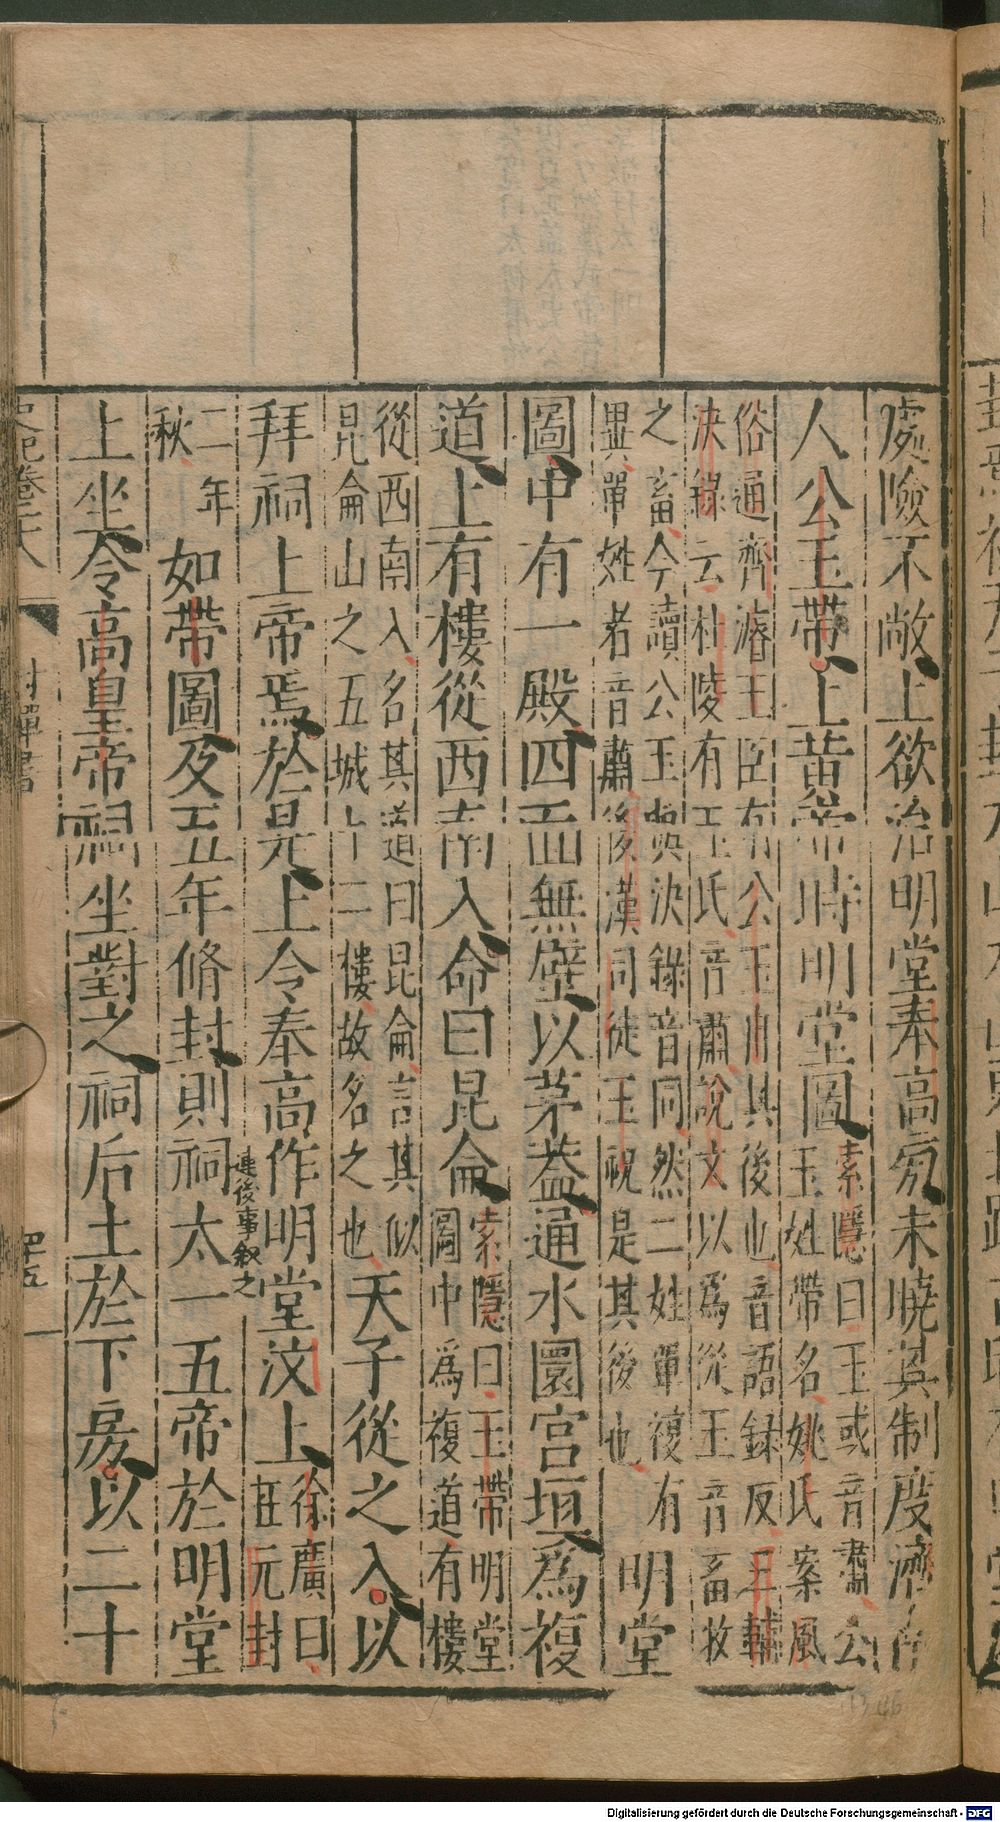 處險不敞上欲治明堂奉高旁未曉其制度濟南
人公玉帶上黃帝時明堂圖索隱曰玉或音肅公
玉姓帶名姚氏案風
俗通齊湣王臣有公玉冉其後也音語録反三輔
決錄云杜陵有玉氏音肅說文以爲從王音畜牧
之畜今讀公玉與決錄音同然二姓單複有
異單姓者音肅後漢司徒玉況是其後也明堂
圖中有一殿四面無壁以茅葢通水圜宮垣爲複
道上有樓從西南入命曰昆侖索隱曰玉帶明堂
圖中爲複道有樓
從西南入名其道曰昆侖言其似
昆侖山之五城十二樓故名之也天子從之入以
拜祠上帝焉於是上令奉高作明堂汶上徐廣曰
在元封
連後事叙之
二年
秋如帶圖及五年脩封則祠太一五帝於明堂
上坐令高皇帝祠坐對之祠后土於下房以二十
史記卷二十八 封禪書 四十五
Digitalisierung gefördert durch die Deutsche Forschungsgemeinschaft - DFG